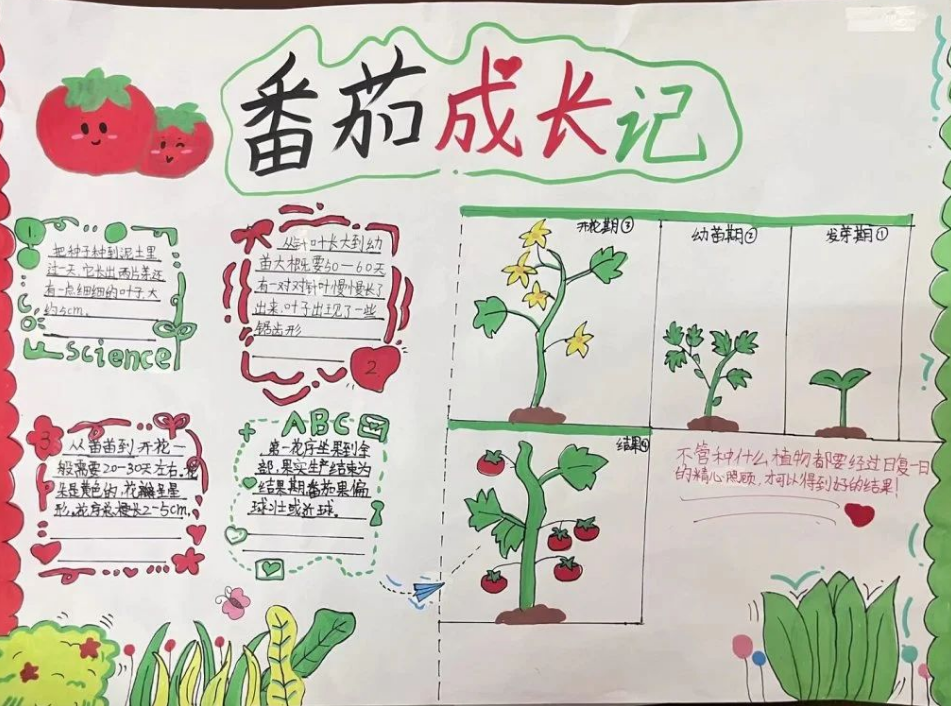 番茄成长记
1.
把种子种到泥土里
过一天,它长出两片芽还
有一点细细的叶子,大
约5cm.
science
从针叶长大到幼
苗大概要50—60天
有一对对针叶慢慢长了
出来,叶子出现了一些
锯齿形
2
3
从苗苗到开花一
般需要20-30天左右,花
朵是黄色的,花瓣呈星
形,花序总梗长2-5cm,
ABC
第一花序坐果到全
部,果实生产结束为
结果期番茄果偏
球壮或近球。
开花期③
幼苗期②
发芽期①
结果④
不管种什么植物都要经过日复一日
的精心照顾,才可以得到好的结果!